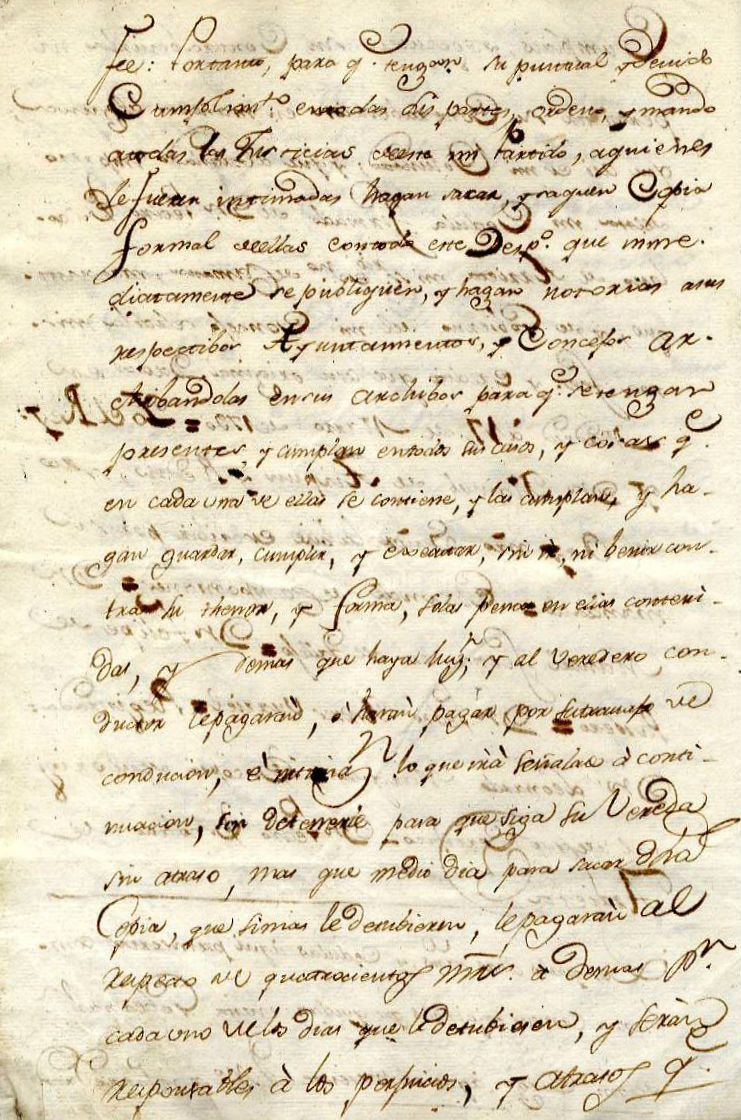 fee: Portanto, para q.e tengan su puntual y devido
Cumplim.to entodas sus partes, ordeno, y mando
atodas las Justicias de este mi Partido, aquienes
le fueren intimadas hagan sacar, y saquen Copia
formal de ellas contodo este Desp.o que inme-
diatamente se publiquen, y hagan notorias asus
respectibos Ayuntamientos, y Concejos ar-
chibandolas ensus archibos para q.e setengan
presentes y cumplan entodos sus casos, y cosas q.e
en cada una de ellas se contiene, y las cumplan, y ha-
gan guardar, cumplir, y executar, sin ir, ni benir con-
tra su thenor, y forma, solas penas en ellas conteni-
das, y demas que haya lug.r y al Veredero con-
ductor lepagaràn, ò haràn pagar por sutravajo de
conducion, è lo que irà señalado à conti-
nuacion, sin detenerle para que siga su Vereda
sin atraso, mas que medio dia para sacar dha
Copia, que simas le detubieren, lepagaràn al
respecto de quatrocientos mrs. a demas p.r
cada uno de los dias que le detubiesen, y seràn
responsables à los perjuicios, y atrasos q.e